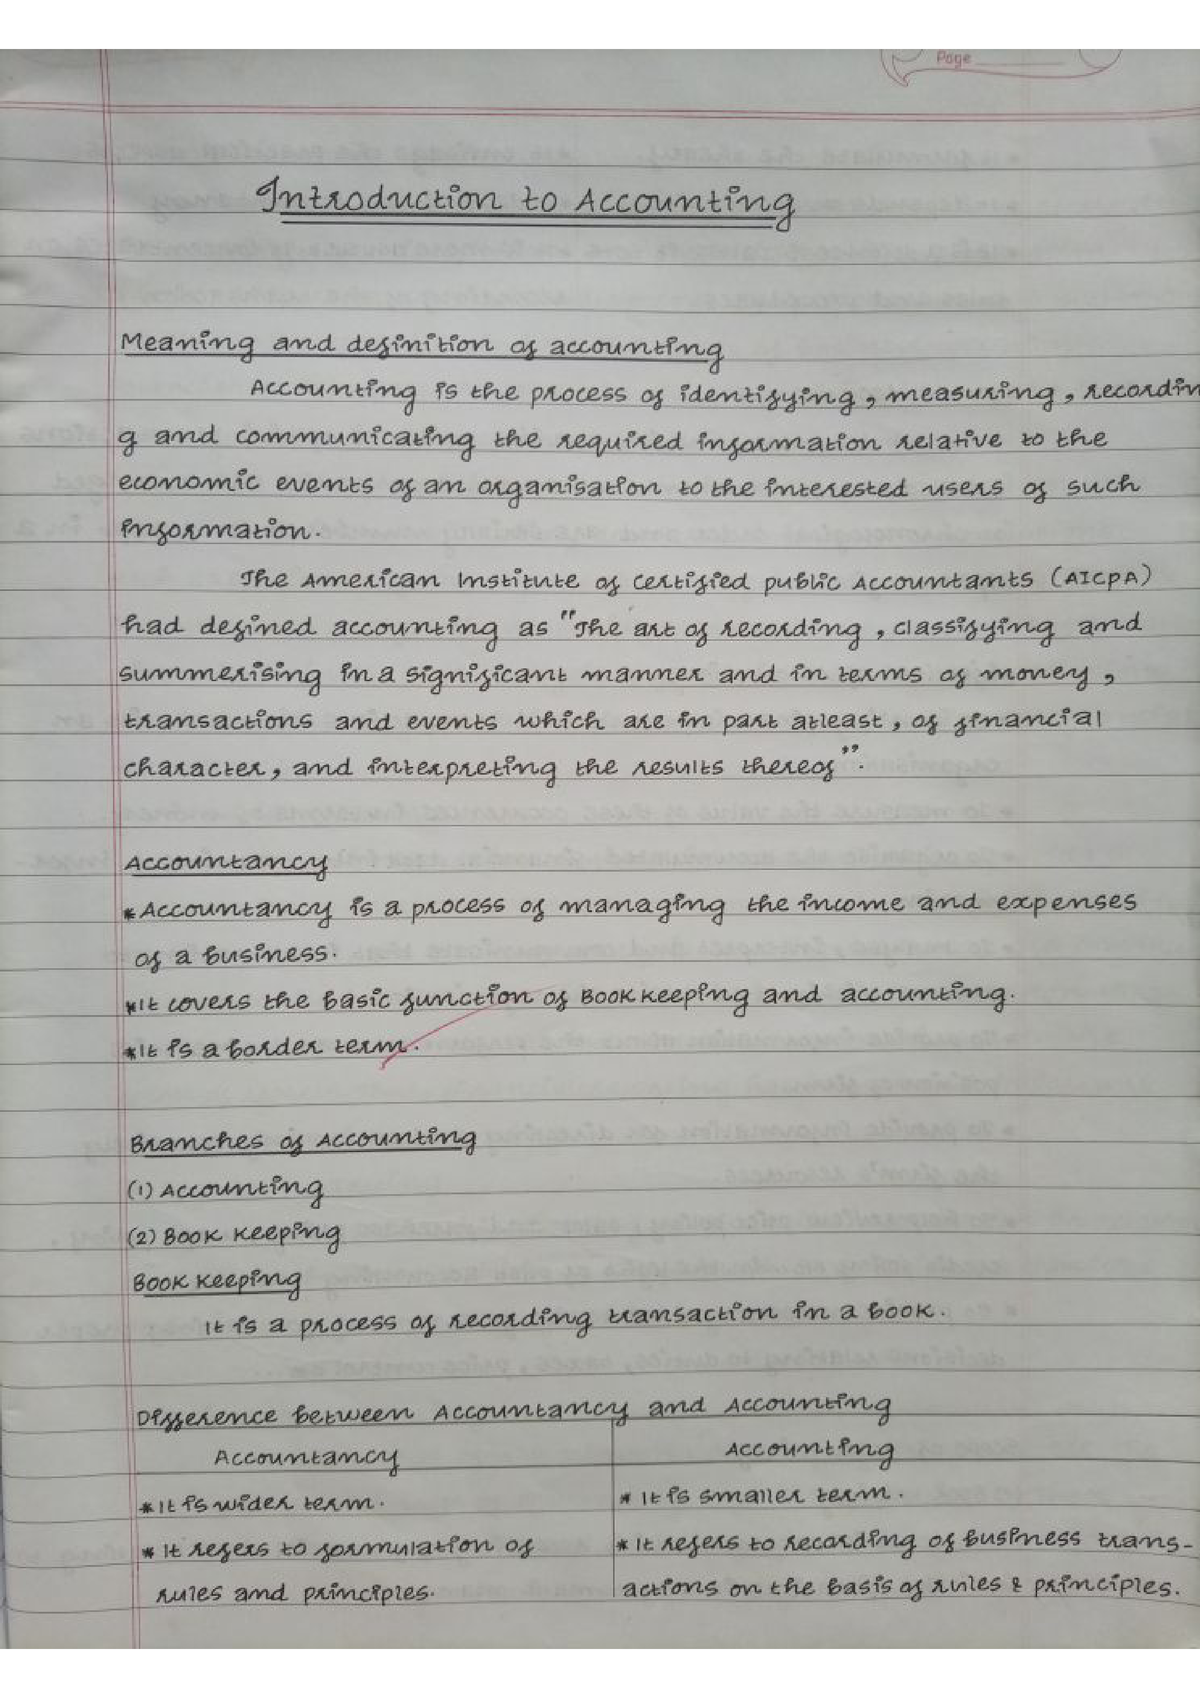 Page
Introduction to Accounting
Meaning and definition of accounting
Accounting is the process of identifying, measuring, recordin
g and communicating the required information relative to the
economic events of an organisation to the interested users of such
information.
The American Institute of certified public Accountants (AICPA)
had defined accounting as "The art of recording, classifying and
summerising in a significant manner and in terms of money,
transactions and events which are in part atleast, of financial
character, and interpreting the results thereof".
Accountancy
* Accountancy is a process of managing the income and expenses
of a business.
* It covers the basic function of Book keeping and accounting.
* It is a border term.
Branches of Accounting
(1) Accounting
(2) Book keeping
Book keeping
It is a process of recording transaction in a book.
Difference between Accountancy and Accounting
Accountancy Accounting
* It is wider term. * It is smaller term.
* It refers to formulation of * It refers to recording of business trans-
rules and principles. actions on the basis of rules & principles.